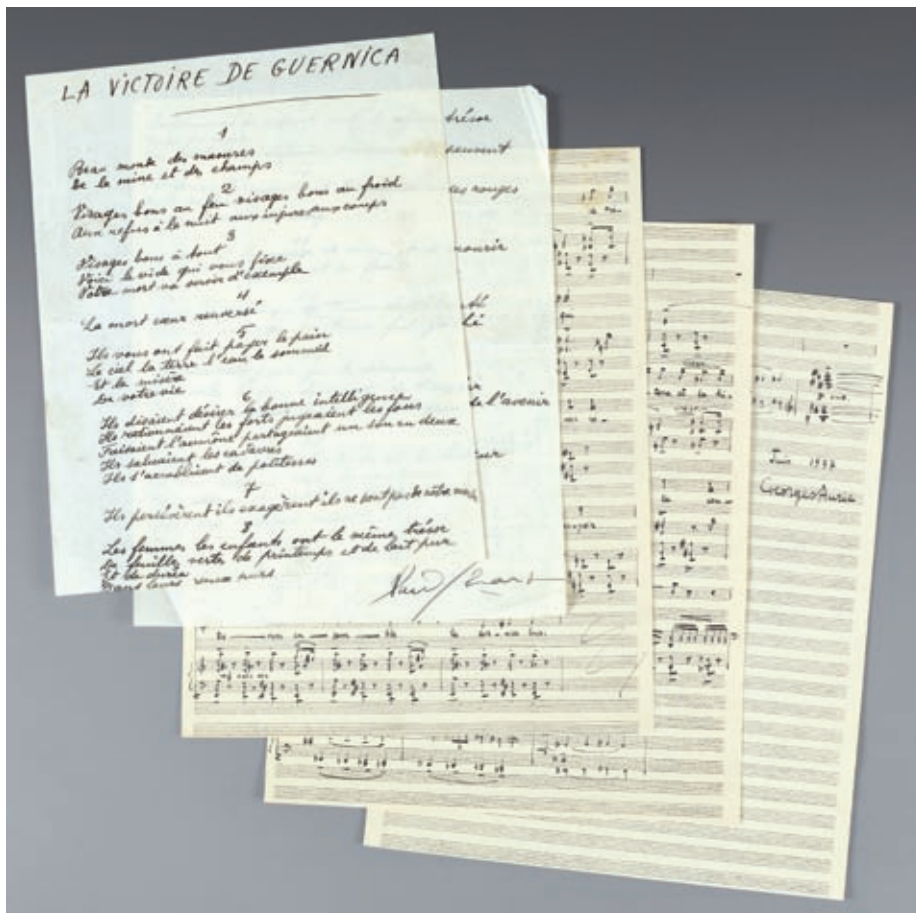 LA VICTOIRE DE GUERNICA
1
Beau monde des masures
De la mine et des champs
2
Visages bons au feu visages bons au froid
Aux refus à la nuit aux injures aux coups
3
Visages bons à tout
Voici le vide qui vous fixe
Votre mort va servir d'exemple
4
La mort cœur renversé
5
Ils vous ont fait payer le pain
Le ciel la terre l'eau le sommeil
Et la misère
De votre vie
6
Ils disaient désirer la bonne intelligence
Ils rationnaient les forts jugeaient les fous
Faisaient l'aumône partageaient un sou en deux
Ils saluaient les cadavres
Ils s'accablaient de politesses
7
Ils persévèrent ils exagèrent ils ne sont pas de notre monde
8
Les femmes les enfants ont le même trésor
De feuilles vertes de printemps et de lait pur
Et de durée
Dans leurs yeux purs
Paul Eluard
trésor
rouges
mourir
de l'avenir
Juin 1937
Georges Auric